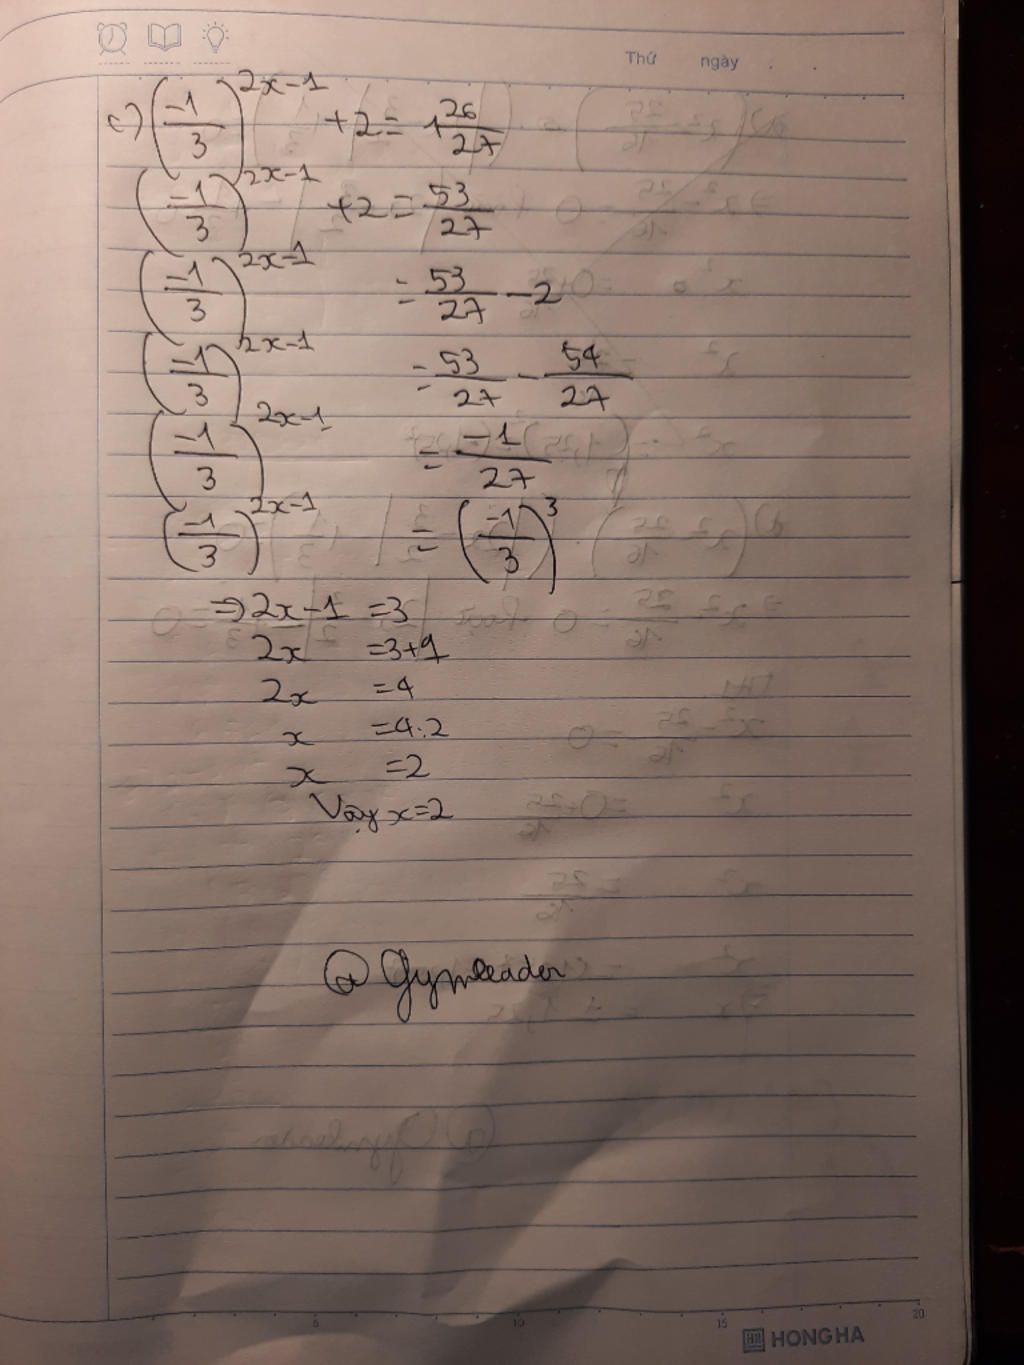 Thứ ngày . .
c) (-1/3)^(2x-1) + 2 = 1 26/27
(-1/3)^(2x-1) + 2 = 53/27
(-1/3)^(2x-1) = 53/27 - 2
(-1/3)^(2x-1) = 53/27 - 54/27
(-1/3)^(2x-1) = -1/27
(-1/3)^(2x-1) = (-1/3)^3
=> 2x-1 =3
2x =3+1
2x =4
x =4:2
x =2
Vậy x=2
@ Gymleader
5 10 15 20
HH HONG HA